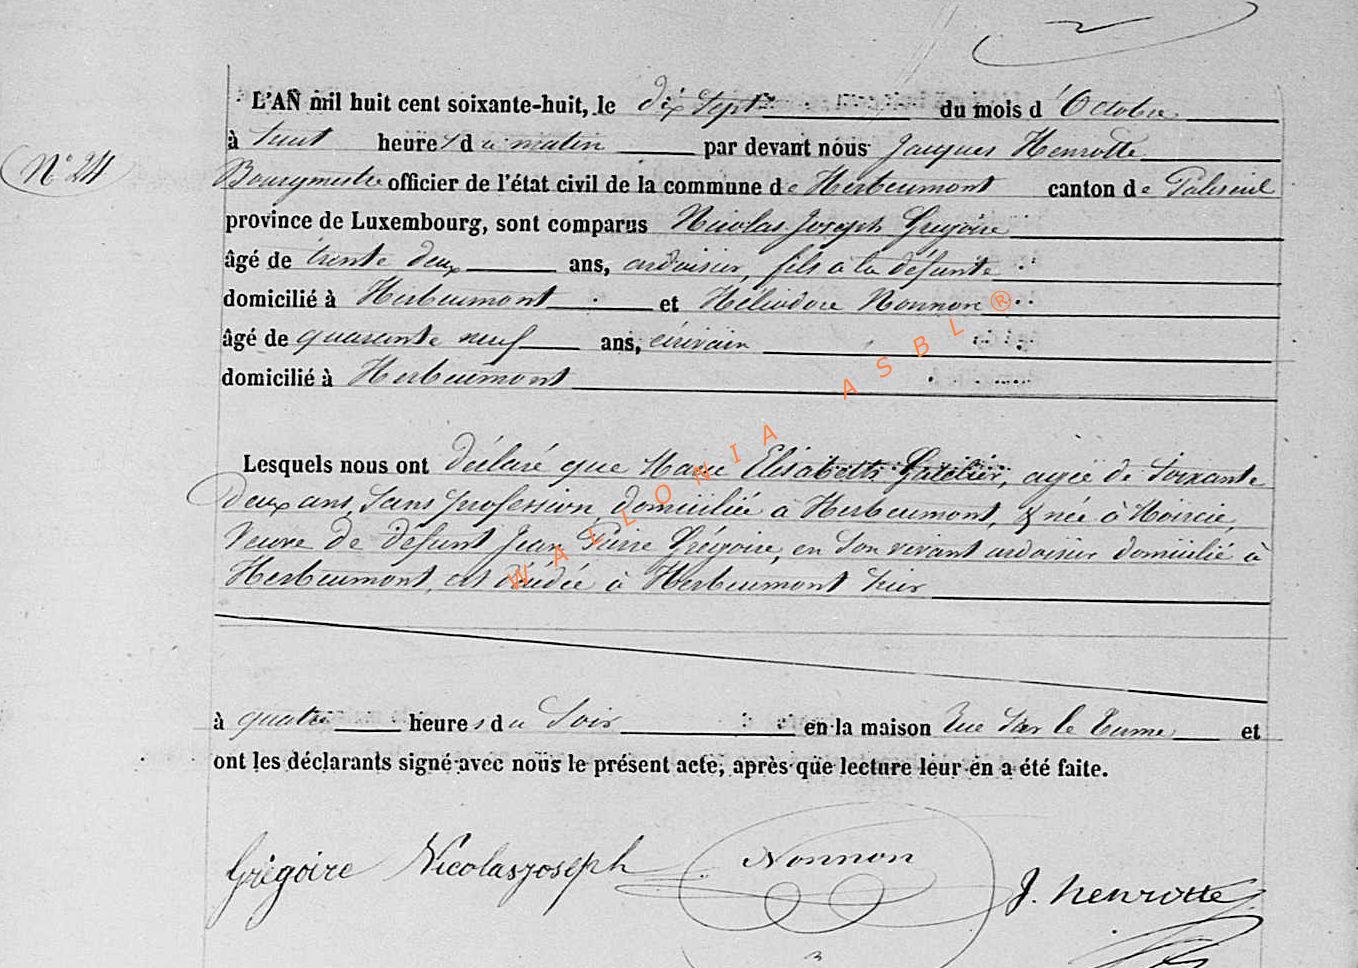 L'AN mil huit cent soixante-huit, le dix sept du mois d'Octobre
à huit heures du matin par devant nous Jacques Henrotte
N° 24
Bourgmestre officier de l'état civil de la commune de Herbeumont canton de Paliseul
province de Luxembourg, sont comparus Nicolas Joseph Grégoire
âgé de trente deux ans, ardoisier, fils à la défunte
domicilié à Herbeumont et Héliodore Nonnon
âgé de quarante neuf ans, écrivain
domicilié à Herbeumont
Lesquels nous ont déclaré que Marie Elisabeth, agée de Soixante
deux ans, Sans profession, domiciliée à Herbeumont, & née à
Veuve de défunt Jean Pierre Grégoire, en Son vivant ardoisier domicilié à
Herbeumont, est décédée à Herbeumont hier
à quatre heures du Soir en la maison Rue Sur le et
ont les déclarants signé avec nous le présent acte, après que lecture leur en a été faite.
Grégoire Nicolas joseph Nonnon J. henrotte
WALLONIA ASBL ®